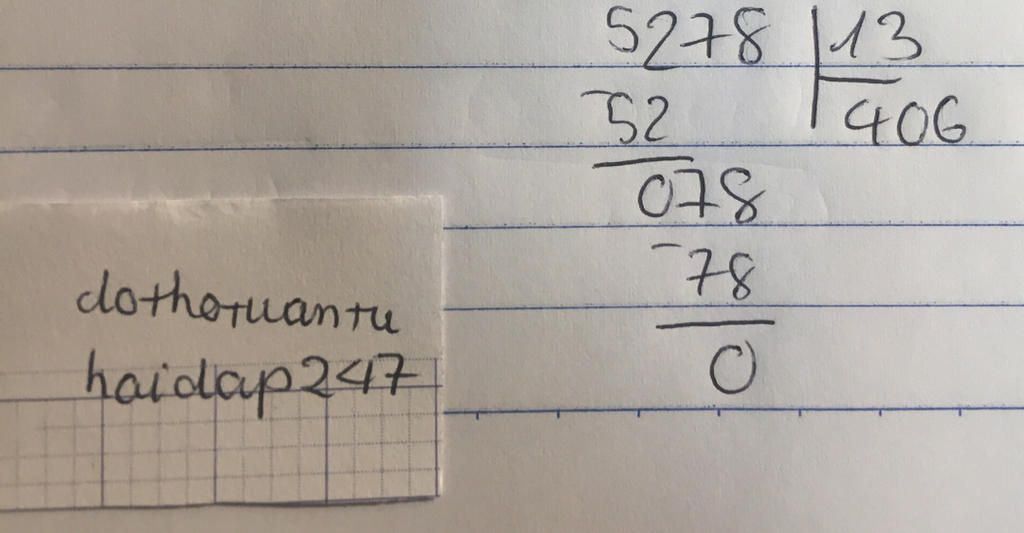 5278 13
-52 406
078
-78
0
dothotuantu
haidap247